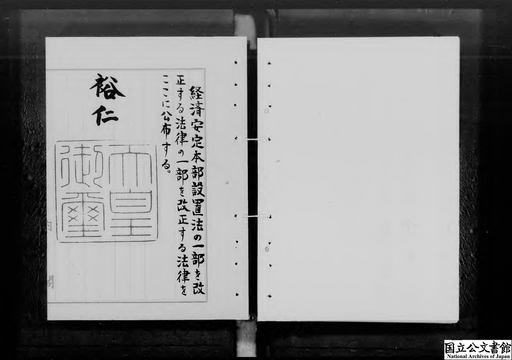 経済安定本部設置法の一部を改
正する法律の一部を改正する法律を
ここに公布する。
裕仁
天皇
御璽
国立公文書館
National Archives of Japan